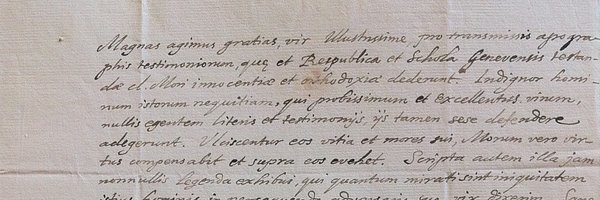 Magnas agimus gratias, vir Illustrissime, pro transmissis apogra-
phis testimoniorum, quę et Respublica et Schola Genevensis testan-
dæ cl. Mori innocentiæ et orthodoxiæ dederunt. Indignor homi-
num istorum nequitiam, qui probissimum et excellentiss. virum,
nullis egentem literis et testimonijs, ijs tamen sese defendere
adegerunt. Ulciscentur eos vitia et mores sui, Morum vero vir-
tus compensabit et supra eos evehet. Scripta autem illa jam
nonnullis legenda exhibui, qui quantum mirati sint iniquitatem
istius hominis in persequendo adversario, quo vir